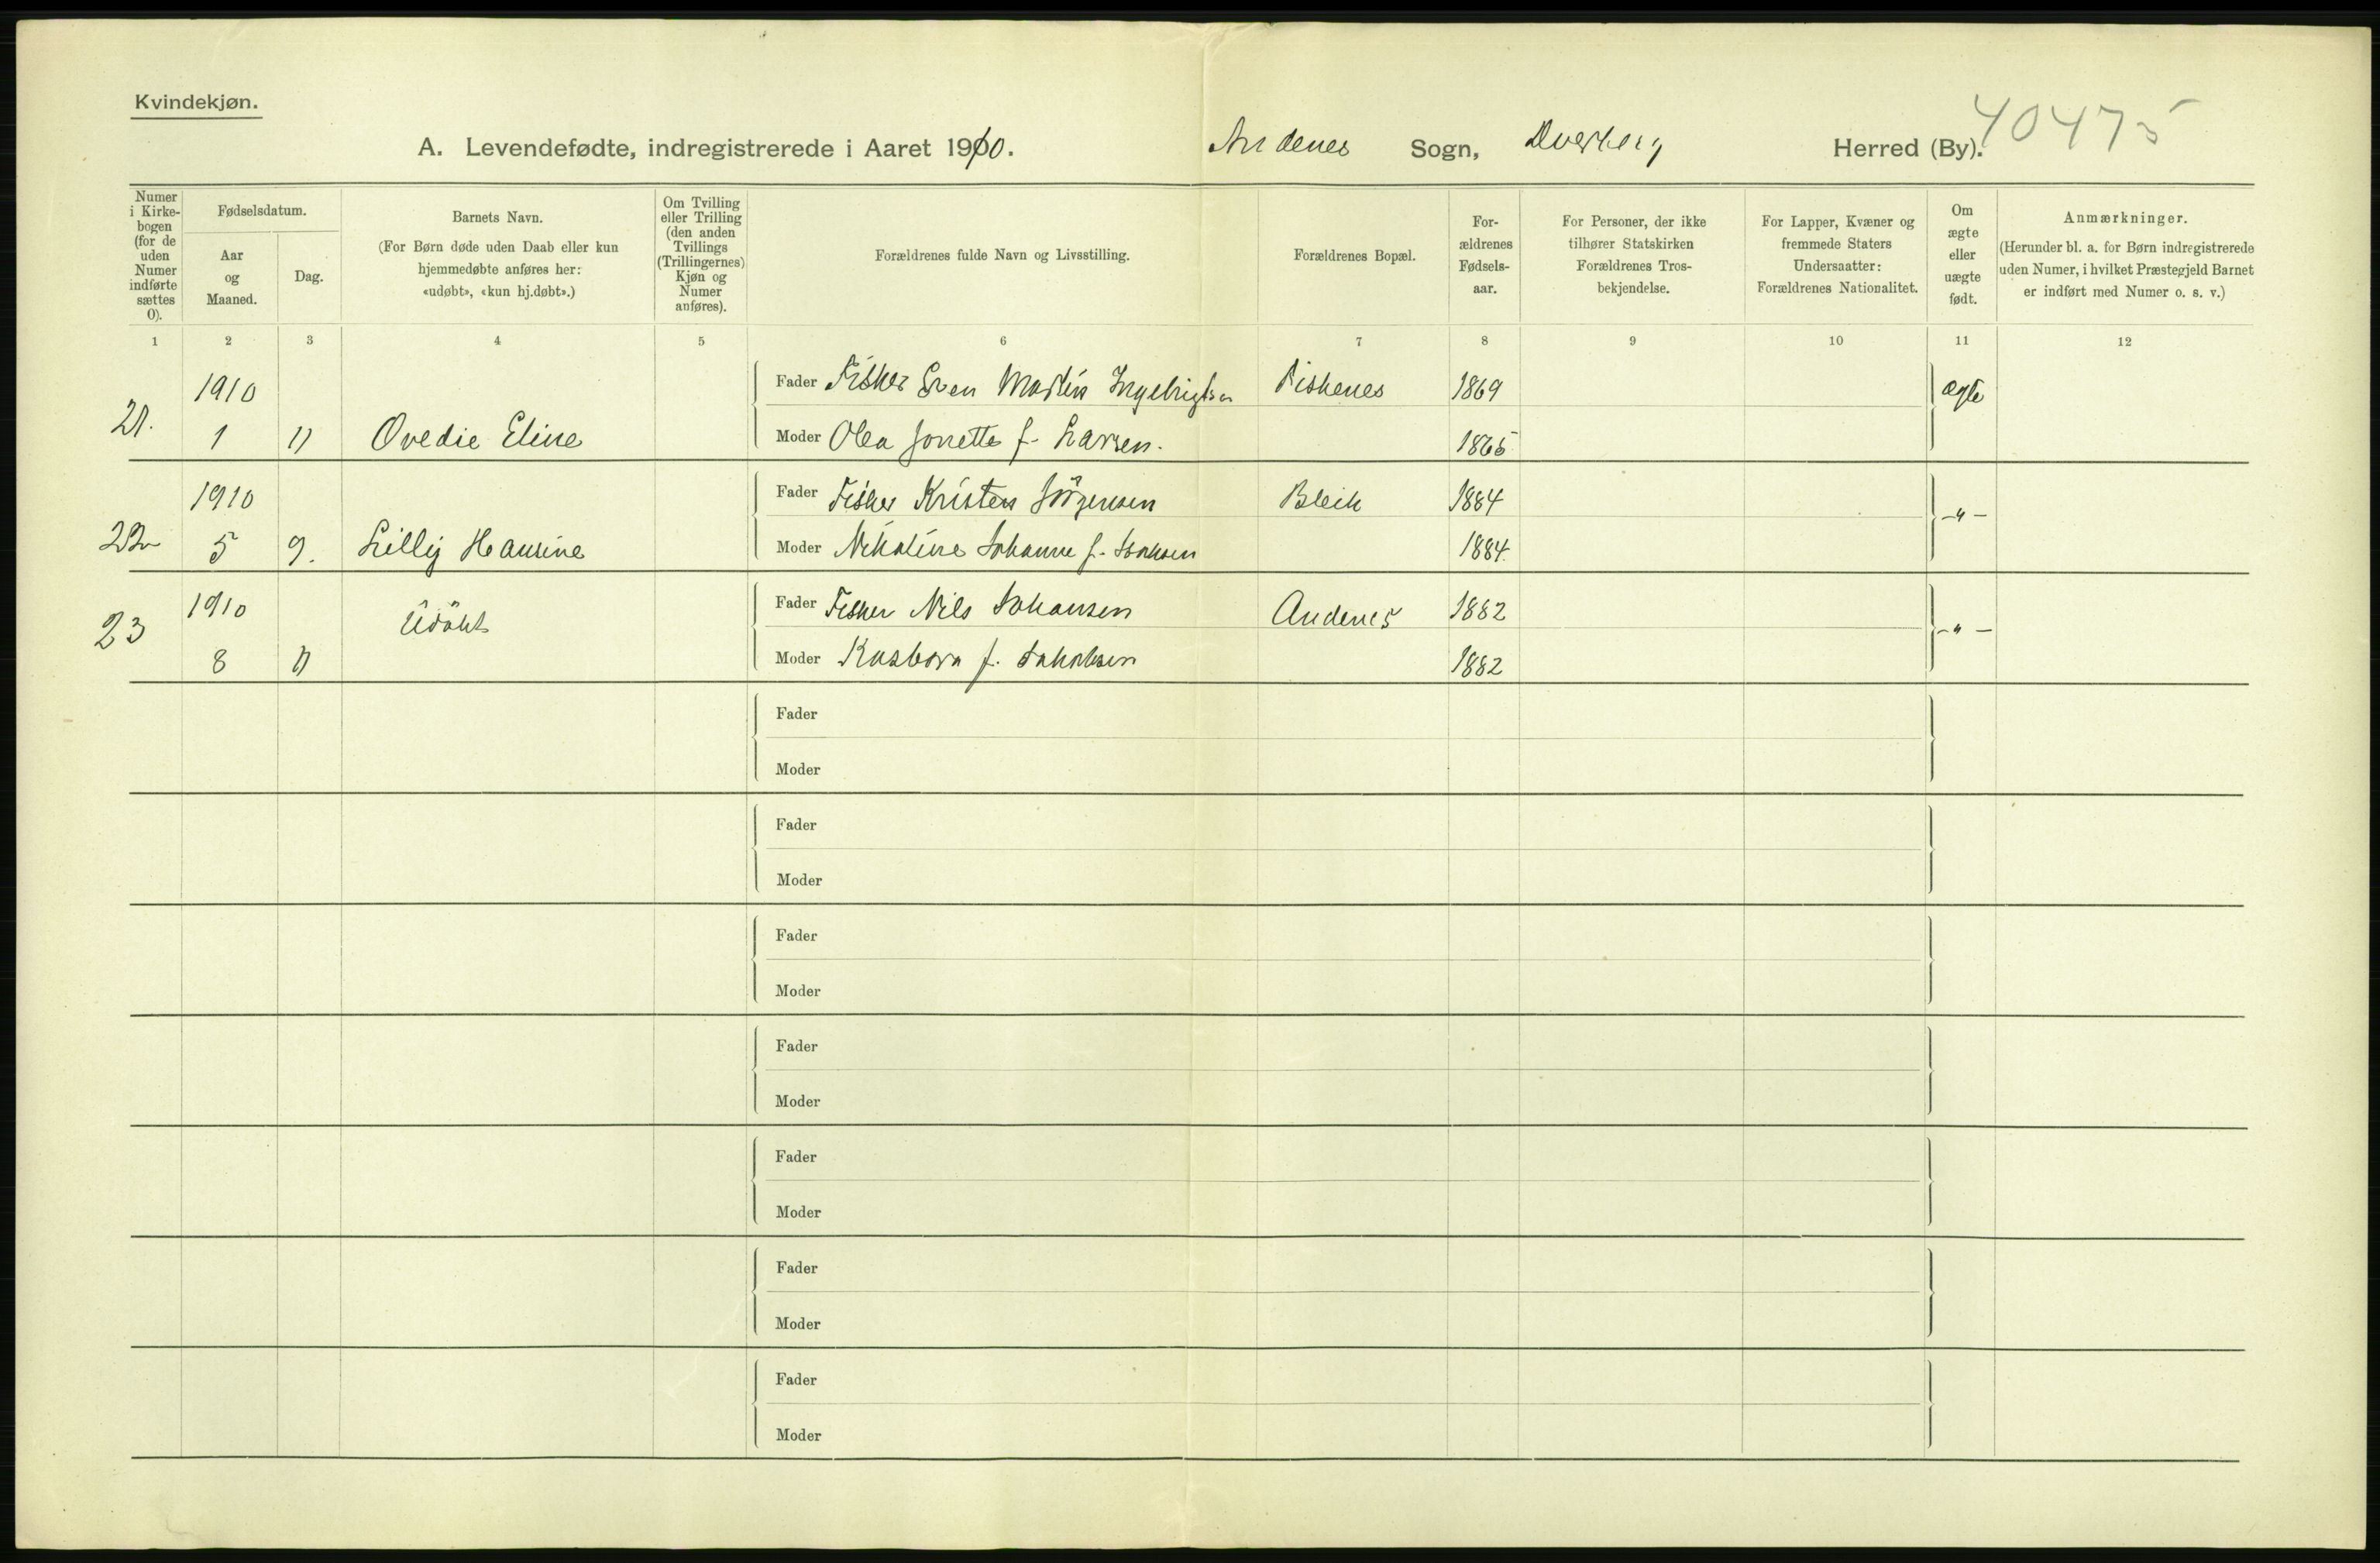 Kvindekjøn.
A. Levendefødte, indregistrerede i Aaret 1910. Andenes Sogn, Dverberg Herred (By).
40475
Numer i Kirkebogen (for de uden Numer indførte sættes 0).
Fødselsdatum.
Aar og Maaned.
Dag.
Barnets Navn.
(For Børn døde uden Daab eller kun hjemmedøbte anføres her: «udøbt», «kun hj.døbt».)
Om Tvilling eller Trilling (den anden Tvillings (Trillingernes) Kjøn og Numer anføres).
Forældrenes fulde Navn og Livsstilling.
Forældrenes Bopæl.
Forældrenes Fødselsaar.
For Personer, der ikke tilhører Statskirken Forældrenes Trosbekjendelse.
For Lapper, Kvæner og fremmede Staters Undersaatter: Forældrenes Nationalitet.
Om ægte eller uægte født.
Anmærkninger.
(Herunder bl. a. for Børn indregistrerede uden Numer, i hvilket Præstegjeld Barnet er indført med Numer o. s. v.)
1 2 3 4 5 6 7 8 9 10 11 12
1910 Fader Fisker Even Martin Ingebrigtsen Fiskenes 1869 ægte
21. 1 11 Ovedie Eline Moder Olea Jonette f. Larsen. 1865
1910 Fader Fisker Kristen Jörgensen Bleik 1884 -"-
22 5 9. Lilly Hansine Moder Nikoline Johanne f. 1884.
1910 Fader Fisker Nils Johansen Andenes 1882 -"-
23 Udöbt
8 11 Moder f. Jakobsen 1882
Fader
Moder
Fader
Moder
Fader
Moder
Fader
Moder
Fader
Moder
Fader
Moder
Fader
Moder